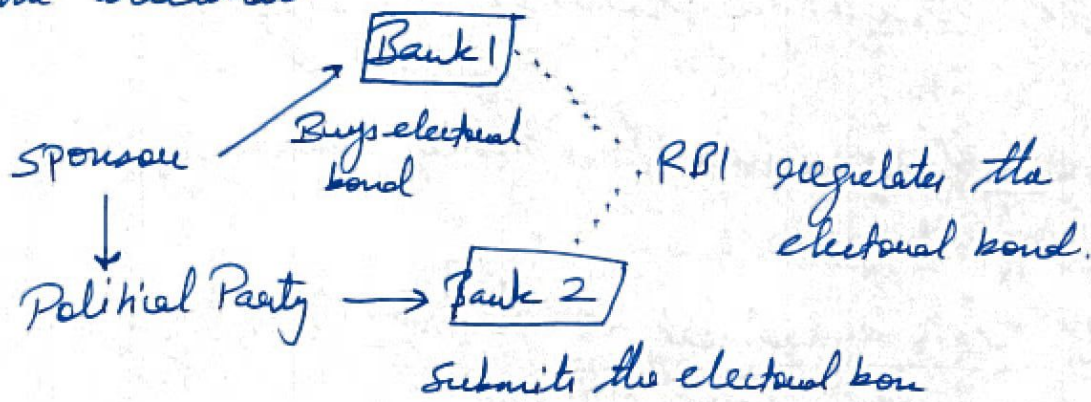 Bank 1
Buys electoral
bond
Sponsor
RBI regulates the
electoral bond.
Political Party
Bank 2
Submits the electoral bon